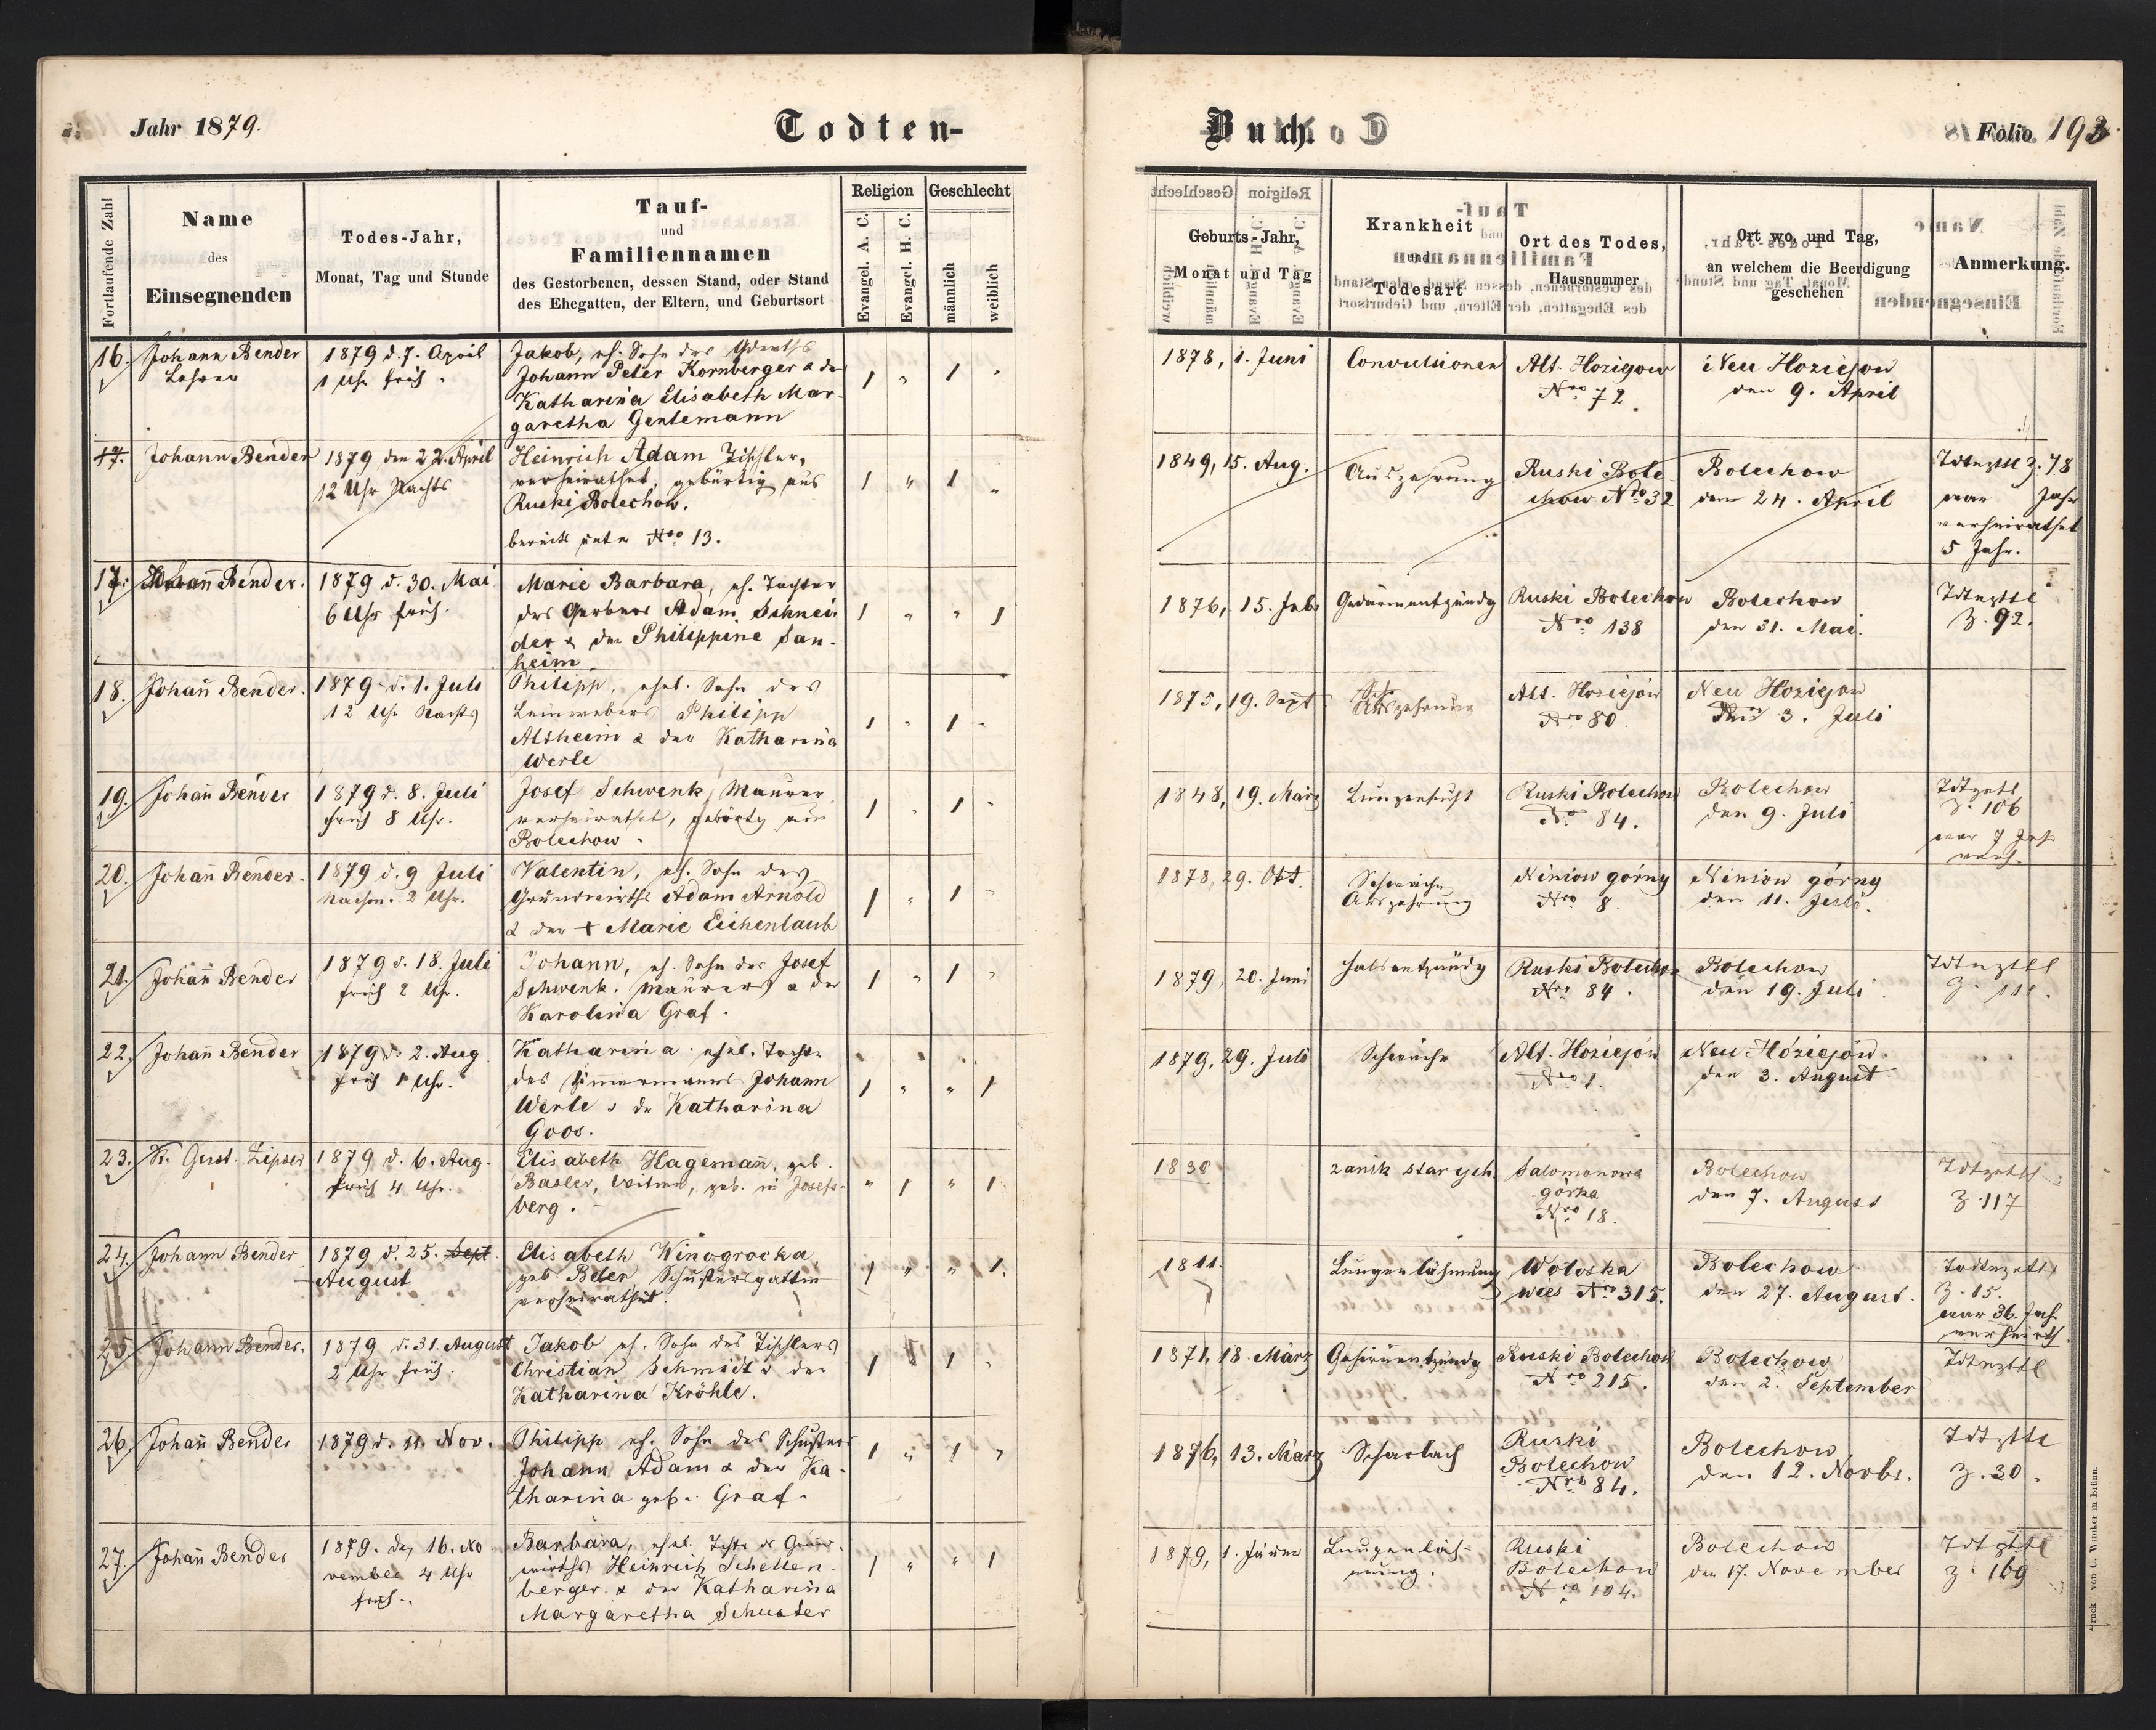 Jahr 1879.
Todten-
Buch.
Folio 193
Fortlaufende Zahl
Name
des
Einsegnenden
Todes-Jahr,
Monat, Tag und Stunde
Tauf-
und
Familiennamen
des Gestorbenen, dessen Stand, oder Stand
des Ehegatten, der Eltern, und Geburtsort
Religion
Evangel. A. C.
Evangel. H. C.
Geschlecht
männlich
weiblich
Geburts-Jahr,
Monat und Tag
Krankheit
und
Todesart
Ort des Todes,
Hausnummer
Ort wo, und Tag,
an welchem die Beerdigung
geschehen
Anmerkung.
16.
Johann Bender
Lehrer
1879 d. 7. April
1 Uhr früh
Jakob, eh. Sohn des
Johann Peter Kornberger & der
Katharina Elisabeth Mar-
garetha Gentemann
1 " 1 "
1878, 1. Juni
Convulsionen
Alt. Hozigow
Nro 72.
Neu Hoziejow
den 9. April
17.
Johann Bender
1879 den 22. April
12 Uhr Nachts
Heinrich Adam Tischler,
verheirathet, gebürtig aus
Ruski Bolechow.
bereits unter Nro 13.
1 " 1 "
1849, 15. Aug.
Auszehrung
Ruski Bole-
chow Nro 32
Bolechow
den 24. April
Tdtnzttl Z. 78
war Jahr
verheirathet
5 Jahr.
17.
Johann Bender.
1879 d. 30. Mai
6 Uhr früh.
Marie Barbara, eh. Tochter
des Gerbers Adam Schnei-
der & der Philippine San-
heim
1 " " 1
1876, 15. Feb.
Gedärmentzündg
Ruski Bolechow
Nro 138
Bolechow
den 31. Mai.
Tdtnzttl
Z. 92.
18.
Johann Bender.
1879 d. 1. Juli
12 Uhr Nachts
Philipp, ehel. Sohn des
Leinwebers Philipp
Altheim & der Katharina
Werle
1 " 1 "
1875, 19. Sept
Auszehrung
Alt. Hoziejów
Nro 80.
Neu Hoziejow
den 3. Juli
19.
Johann Bender
1879 d. 8. Juli
früh 8 Uhr.
Josef Schwenk, Maurer,
verheirathet, gebürtg aus
Bolechow.
1 " 1 "
1848, 19. März
Lungensucht
Ruski Bolechow
No 84.
Bolechow
den 9. Juli
Tdtzettl
Z. 106
war 7 Jahr
verh.
20.
Johann Bender.
1879 d. 9 Juli
Nachm. 2 Uhr.
Valentin, eh. Sohn des
Grundwirths Adam Arnold
& der + Marie Eichenlaub
1 " 1 "
1878, 29. Okt.
Schwäche
Auszehrung
Niniow górny
Nro 8.
Niniow górny
den 11. Juli.
21.
Johann Bender
1879 d. 18. Juli
früh 2 Uhr.
Johann, eh. Sohn des Josef
Schwenk. Maurers & der
Karolina Graf.
1 " 1 "
1879, 20. Juni
Halsentzündg
Ruski Bolechow
Nro 84.
Bolechow
den 19. Juli
Tdtnzttl
Z. 111.
22.
Johann Bender
1879 d. 2. Aug.
früh 1 Uhr.
Katharina ehel. Tochter
des Zimmermanns Johann
Werle & der Katharina
Goos.
1 " " 1
1879, 29. Juli
Schwäche
Alt-Hoziejów
Nro 1.
Neu-Hóziejów.
den 3. August
23.
Gust. Zipser
1879 d. 6. Aug.
früh 4 Uhr.
Elisabeth Hagemann, geb.
Basler, Witwe, geb. in Josefs-
berg.
" 1 " 1
1830
zanik starych.
Salomonowa
górka
Nro 18.
Bolechow
den 7. August
Tdtzettl
Z. 117
24.
Johann Bender
1879 d. 25. Sept.
August
Elisabeth Winogrocka
geb. Beler, Schustersgattin
verheirathet.
1 " " 1.
1811.
Lungenlähmung
Woloska
wies No 315.
Bolechow
den 27. August.
Todtnzettl
Z. 15.
war 36 Jah.
verheirth.
25.
Johann Bender.
1879 d. 31. August
2 Uhr früh.
Jakob eh. Sohn des Tischlers
Christian Schmidt & der
Katharina Kröhle.
1 " 1 "
1871, 18. März
Gehirnentzündg
Ruski Bolechow
Nro 215.
Bolechow
den 2. September
Tdtnzttl
26.
Johann Bender
1879 d. 11. Nov.
Philipp eh. Sohn des Schusters
Johann Adam & der Ka-
tharina geb. Graf.
1 " 1 "
1876, 13. März
Scharlach
Ruski
Bolechow
Nro 84.
Bolechow
den 12. Novbr.
Tdtzttl
Z. 30.
27.
Johann Bender
1879. den 16. No-
vember 4 Uhr
früh.
Barbara, ehel. Tocht. d. Grund-
wirths Heinrich Schellen-
berger & der Katharina
Margaretha Schuster
1 " " 1
1879, 1. Jänner
Lungenläh-
mung.
Ruski
Bolechow
Nro 104.
Bolechow
den 17. November
Tdtzttl
Z. 169
Druck von C. Winiker in Brünn.